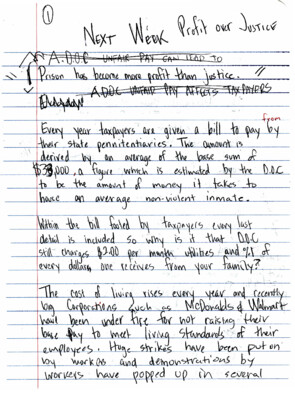 1
NEXT WEEK Profit over Justice
A.D.O.C UNFAIR PAY CAN LEAD TO
Prison has become more profit than justice. //
A.DOC UNFAIR PAY AFFECTS TAXPAYERS
from
Every year taxpayers are given a bill to pay by
their state penitentiaries. The amount is
derived by an average of the base sum of
a figure which is estimated by the D.O.C
to be the amount of money it takes to
house an average non-violent inmate.
Within the bill footed by taxpayers every last
detail is included so why is it that D.O.C
still charges $2.00 per month utilities and
every dollar one receives from your family?
The cost of living rises every year and recently
big Corporations such as McDonalds & Walmart
have been under fire for not raising their
base pay to meet living standards of their
employees. Huge strikes have been put on
by workers and demonstrations by
workers have popped up in several